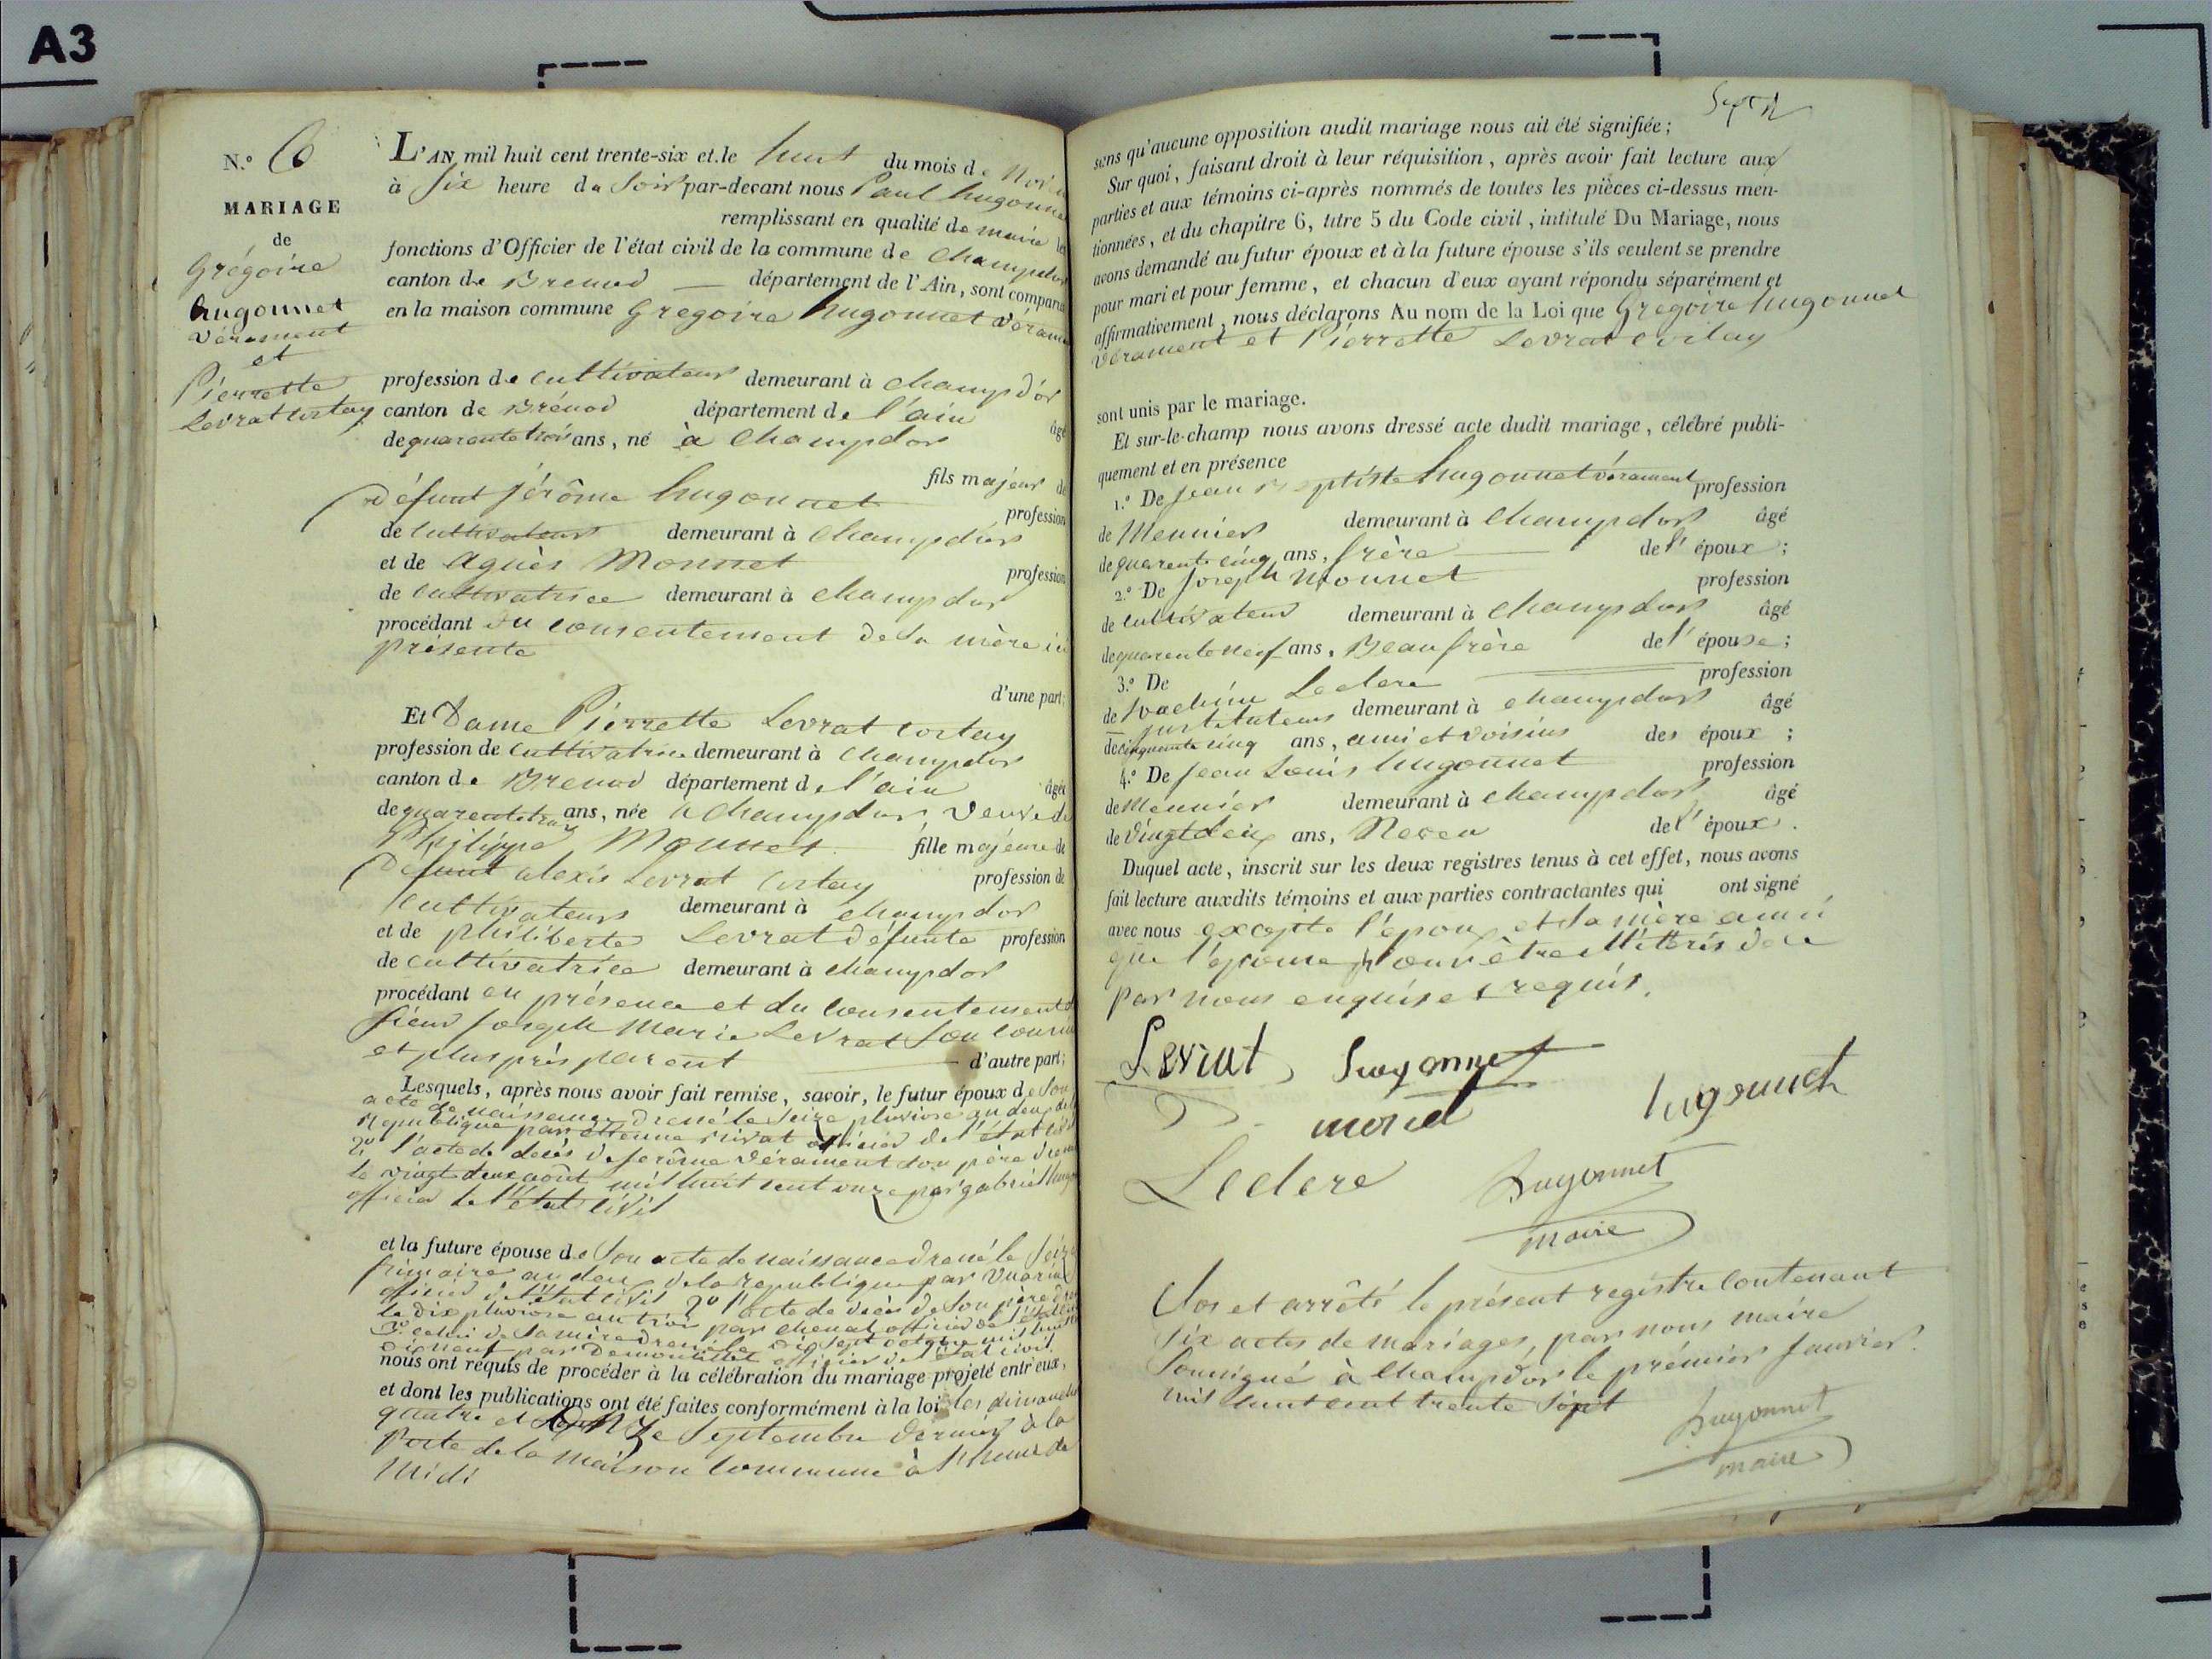 A3
N.º 6
MARIAGE
de
Grégoire
hugonnet
vérament
et
Pierrette
Levrat cortay
L'AN mil huit cent trente-six et le huit du mois de
à six heure du soir par-devant nous Paul hugonnet
remplissant en qualité de maire les
fonctions d'Officier de l'état civil de la commune de Champdor
canton de Brenod — département de l'Ain, sont comparus
en la maison commune Grégoire hugonnet vérament
profession de cultivateur demeurant à champd'or
canton de Brénod département de l'ain âgé
de quarente trois ans, né à Champdor
fils majeur de
défunt jérôme hugonnet profession
de cultivateur demeurant à Champdor
et de agnès Monnet profession
de cultivatrice demeurant à champdor
procédant du consentement de sa mère ici
présente
d'une part;
Et Dame Pierrette Levrat cortay
profession de cultivatrice demeurant à champdor
canton de Brenod département de l'ain âgée
de quarente trois ans, née à Champdor, veuve de
Philippe Monnet fille majeure de
Défunt alexis Levrat cortay profession de
cultivateur demeurant à champdor
et de philiberte Levrat défunte profession
de cultivatrice demeurant à champdor
procédant en présence et du consentement
sieur joseph Marie Levrat son cousin
et plus près parent — d'autre part;
Lesquels, après nous avoir fait remise, savoir, le futur époux de son
acte de naissance dressé le seize pluviose an deux de la
République par officier de l'état civil
2º l'acte de décès de jerôme vérament son père dressé
le vingt deux août mil huit cent onze par gabriel
officier de l'état civil
et la future épouse de son acte de naissance dressé le seize
frimaire an deux de la republique par
officier de l'état civil 2º l'acte de décès de son père
le dix pluviose an trois par officier de l'état
3º celui de sa mère dressé le dix sept octobre mil huit
dix neuf par officier de l'état civil.
nous ont requis de procéder à la célébration du mariage projeté entr'eux,
et dont les publications ont été faites conformément à la loi les dimanches
quatre et onze septembre dernier à la
porte de la maison commune à l'heure de
Midi
sans qu'aucune opposition audit mariage nous ait été signifiée;
Sur quoi, faisant droit à leur réquisition, après avoir fait lecture aux
parties et aux témoins ci-après nommés de toutes les pièces ci-dessus men-
tionnées, et du chapitre 6, titre 5 du Code civil, intitulé Du Mariage, nous
avons demandé au futur époux et à la future épouse s'ils veulent se prendre
pour mari et pour femme, et chacun d'eux ayant répondu séparément et
affirmativement, nous déclarons Au nom de la Loi que Grégoire hugonnet
vérament et Pierrette Levrat cortay
sont unis par le mariage.
Et sur-le-champ nous avons dressé acte dudit mariage, célébré publi-
quement et en présence
1.º De jean Baptiste hugonnet vérament profession
de Meunier demeurant à champdor âgé
de quarente cinq ans, frère de l'époux;
2.º De joseph Monnet profession
de cultivateur demeurant à champdor âgé
de quarente neuf ans, Beaufrère de l'épouse;
3.º De profession
de joachim Leclere
instituteur demeurant à champdor âgé
de cinquante cinq ans, ami et voisins des époux;
4.º De jean Louis hugonnet profession
de Meunier demeurant à champdor âgé
de vingt deux ans, Neveu de l'époux.
Duquel acte, inscrit sur les deux registres tenus à cet effet, nous avons
fait lecture auxdits témoins et aux parties contractantes qui ont signé
avec nous excepté l'époux et sa mère ainsi
que l'épouse pour être illitérés de ce
par nous enquise et requis.
Levrat hugonnet
hugonnet
Leclere hugonnet
maire
Clos et arrêté le présent registre contenant
six actes de mariages, par nous maire
soussigné à Champdor le prémier janvier
mil huit cent trente sept
hugonnet
maire